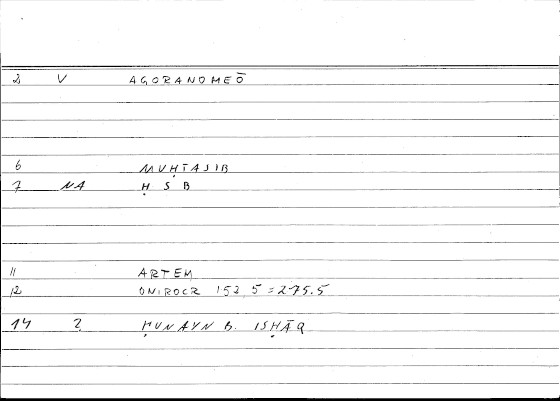 2 V AGORANOMEŌ
6 MUḤTASIB
7 NA Ḥ S B
11 ARTEM
12 ONIROCR 152 5 = 275.5
14 2 ḤUNAYN B. ISḤĀQ